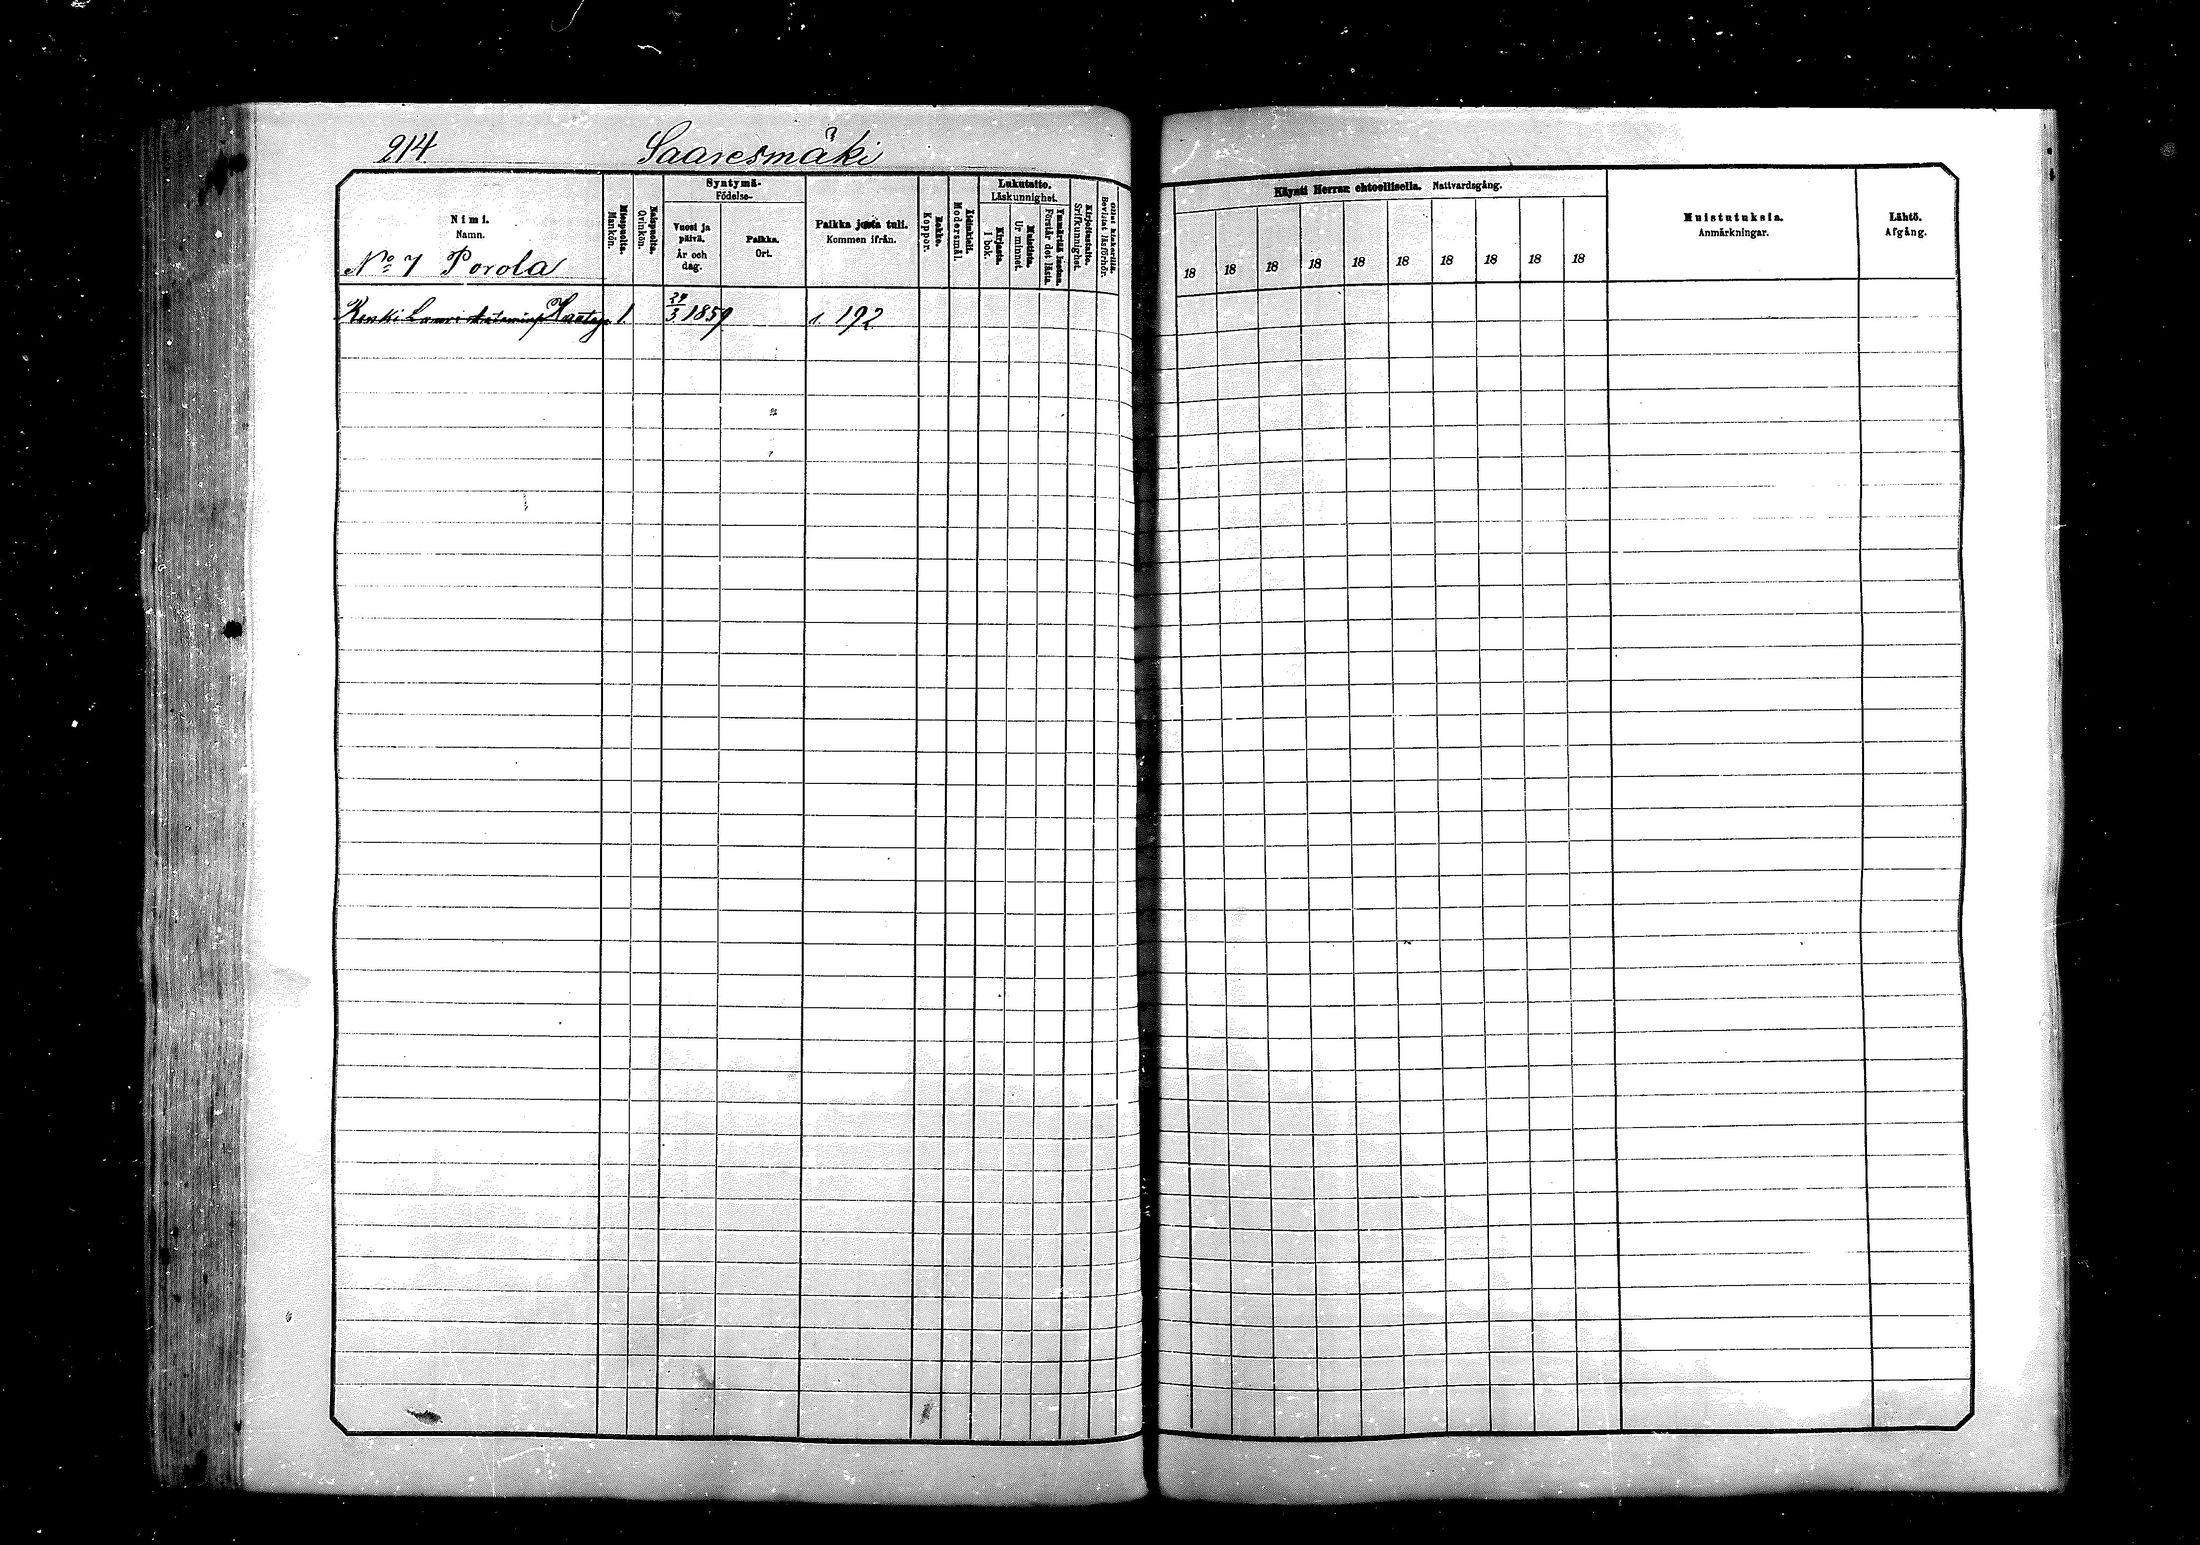 214.
Saaresmäki
Nimi.
Namn.
No 7 Porola
Miespuolta.
Mankön.
Naispuolta.
Qvinkön.
Syntymä-
Födelse-
Vuosi ja
päivä.
År och
dag.
Paikka.
Ort.
Paikka josta tuli.
Kommen ifrån.
Rokko.
Koppor.
Äidinkieli.
Modersmål.
Lukutaito.
Läskunnighet.
Kirjasta.
I bok.
Muistista.
Ur minnet.
Ymmärtää luetun.
Förstår det lästa.
Kirjoitustaito.
Srifkunnighet.
Ollut kinkerillä.
Bevistat läsförhör.
Käynti Herran ehtoollisella. Nattvardsgång.
18 18 18 18 18 18 18 18 18 18
Muistutuksia.
Anmärkningar.
Lähtö.
Afgång.
Renki Lauri Haataja 1. 29/3 1859 s. 192